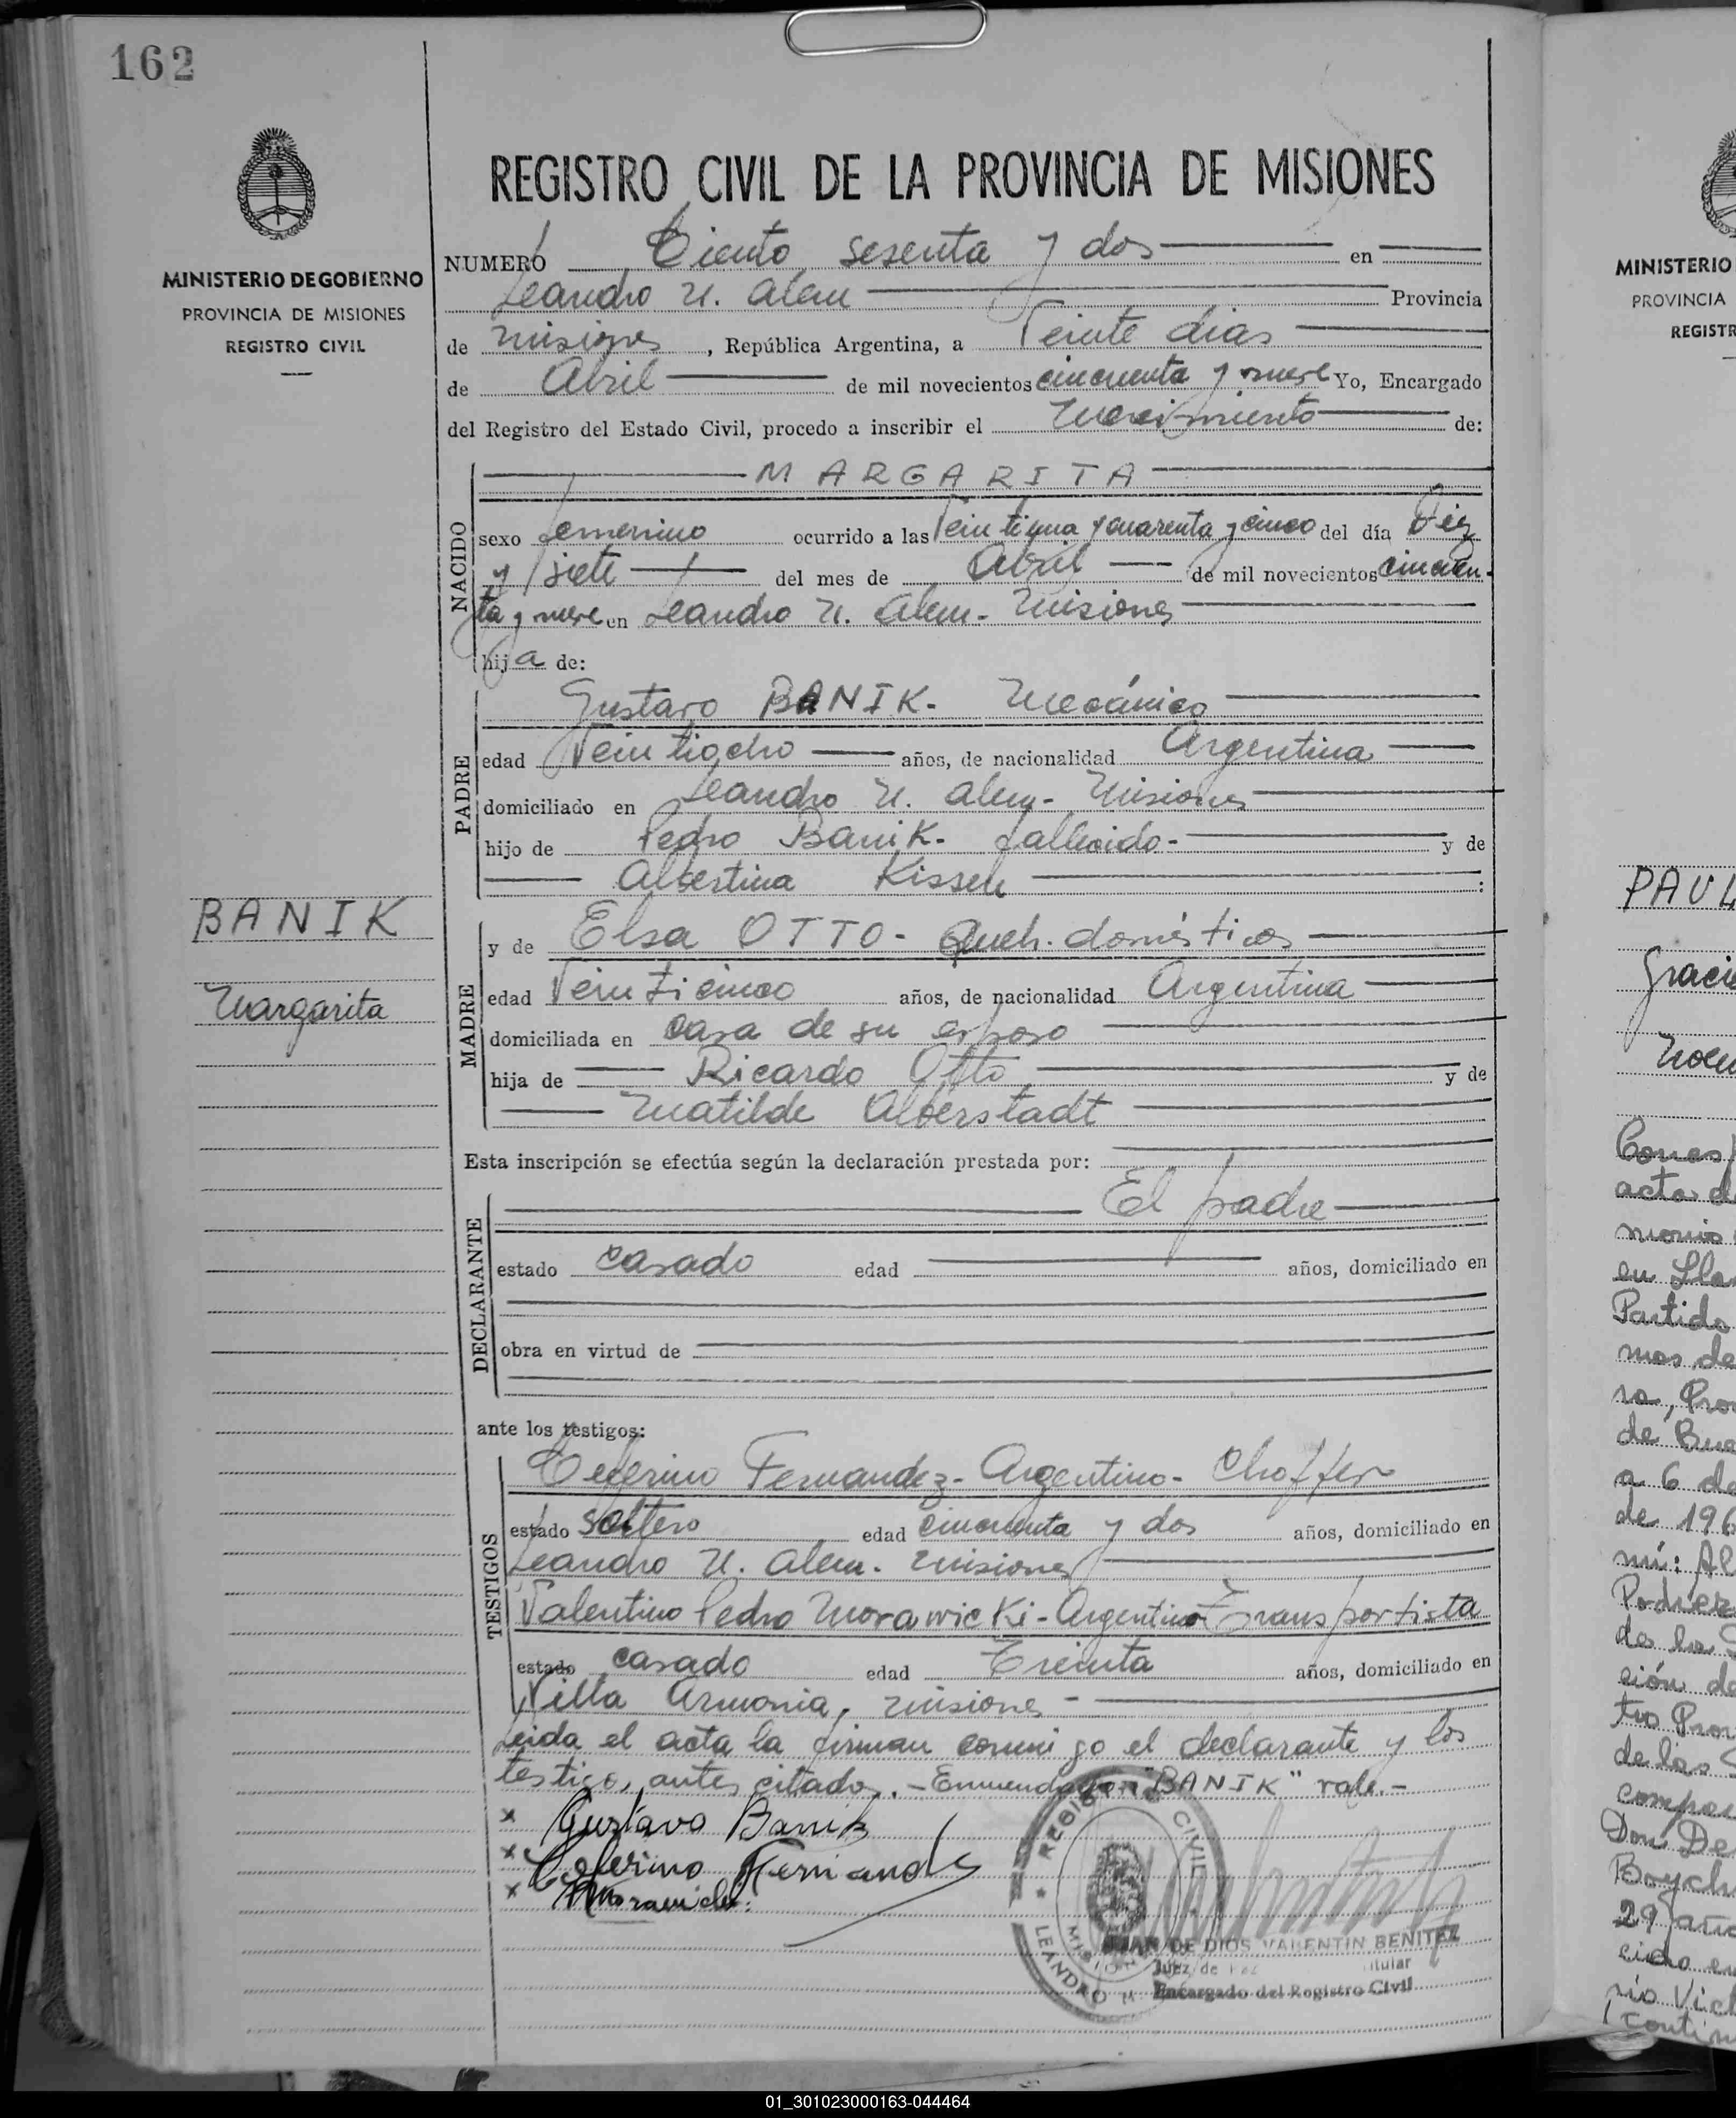 162
MINISTERIO DE GOBIERNO
PROVINCIA DE MISIONES
REGISTRO CIVIL
REGISTRO CIVIL DE LA PROVINCIA DE MISIONES
NUMERO Ciento sesenta y dos en
Leandro N. Alem Provincia
de Misiones, República Argentina, a Veinte dias
de Abril de mil novecientos cincuenta y nueve Yo, Encargado
del Registro del Estado Civil, procedo a inscribir el Nacimiento de:
NACIDO
MARGARITA
sexo femenino ocurrido a las Veintiuna y cuarenta y cinco del día Diez
y siete del mes de Abril de mil novecientos cincuen-
ta y nueve en Leandro N. Alem - Misiones
hija de:
PADRE
Gustavo BANIK - Mecánico
edad Veintiocho años, de nacionalidad Argentina
domiciliado en Leandro N. Alem - Misiones
hijo de Pedro Banik - fallecido - y de
Albertina Kissen :
BANIK
Margarita
MADRE
y de Elsa OTTO - Queh. domésticos
edad Veinticinco años, de nacionalidad Argentina
domiciliada en casa de su esposo
hija de Ricardo Otto y de
Matilde Alberstadt
Esta inscripción se efectúa según la declaración prestada por:
DECLARANTE
El padre
estado casado edad años, domiciliado en
obra en virtud de
ante los testigos:
TESTIGOS
Ceferino Fernandez - Argentino - Choffer
estado soltero edad cincuenta y dos años, domiciliado en
Leandro N. Alem - Misiones
Valentino Pedro Morawicki - Argentino - Transportista
estado casado edad Treinta años, domiciliado en
Villa Armonia, Misiones -
Leida el acta la firman conmigo el declarante y los
testigos antes citados. - Enmendado: "BANIK" vale. -
x Gustavo Banik
x Ceferino Fernandez
x Morawicki
REGISTRO CIVIL
MISIONES
LEANDRO N.
JUAN DE DIOS VALENTIN BENITEZ
Juez de Paz Titular
Encargado del Registro Civil
MINISTERIO
PROVINCIA
REGISTR
PAUL
Gracie
acta d
en Lla
Partido
mos de
ra, Prov
de Bue
a 6 de
de 196
mi: Al
de la S
ción de
tro Prov
de las S
compar
Don De
Boych
29 año
cido en
rio Vic
(contin
01_301023000163-044464